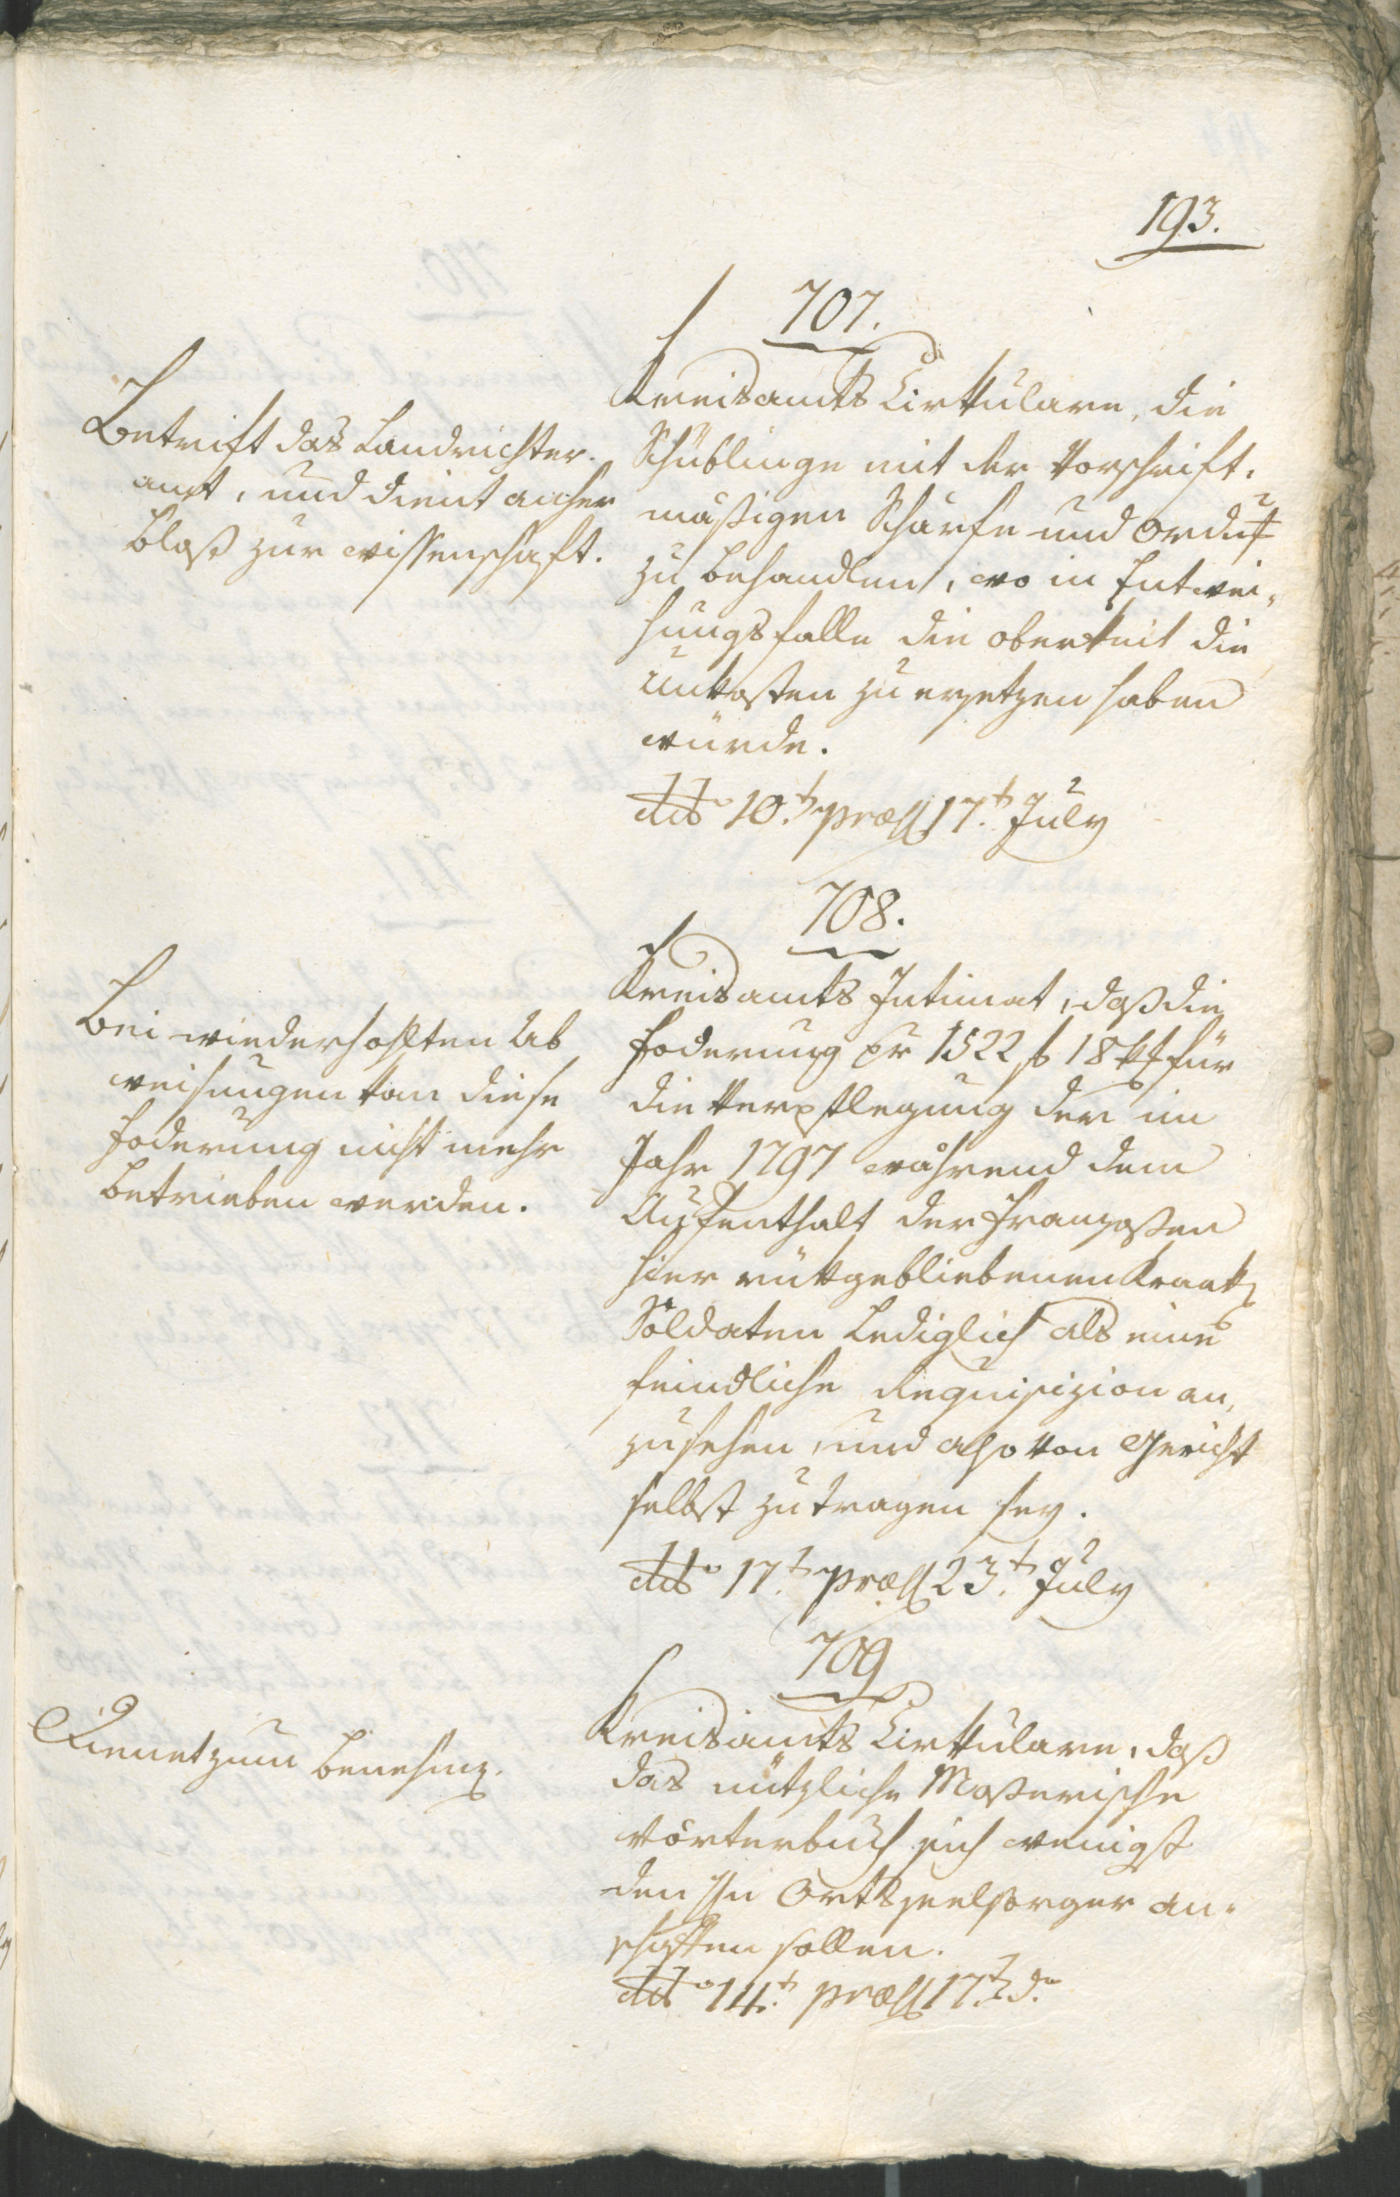 193.
707.
Kreisamts Cirkulare, die
Schüblinge mit der Vorschrift¬
mäßigen Schärfe und Ordn̄g
zu behandlen, wo in Entwei¬
hungsfalle die oberkeit die
Unkosten zu ersetzen haben
würde.
ddto 10.t præs 17.t July
Betrift das Landrichter¬
amt, und dient anher
bloß zur wissenschaft.
708.
Kreisamts Intimat, daß die
Foderung pr 1522 f 18 kr für
die Verpflegung der im
Jahr 1797 während dem
Aufenthalt der Franzosen
hier rükgebliebenen Krank
Soldaten lediglich als eine
feindliche Requisizion an¬
zusehen, und also von Gericht
selbst zu tragen sey.
ddto 17.t præs 23.t July
Bei wiederhohlten Ab
weisungen kan diese
Foderung nicht mehr
betrieben werden.
709
Kreisamts Cirkulare, daß
das nützliche Moserische
Wörterbuch sich wenigst
den Hn Ortsseelsorger an¬
schaffen sollen.
ddto 14.t præs 17.t do
Dienet zum Benehmen.